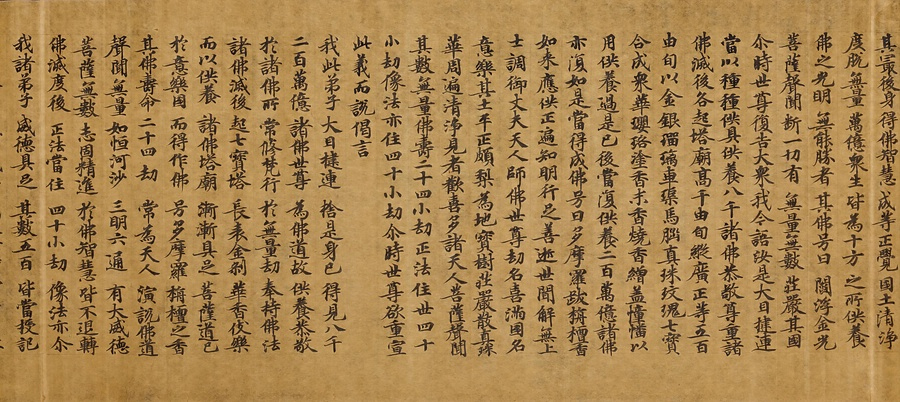 其最後身 得佛智慧 成等正覺 國土清淨
度脫無量 萬億衆生 皆為十方 之所供養
佛之光明 無能勝者 其佛号曰 閻浮金光
菩薩聲聞 斷一切有 無量無數 莊嚴其國
尒時世尊復告大衆我今語汝是大目揵連
當以種種供具供養八千諸佛恭敬尊重諸
佛滅後各起塔廟高千由旬縱廣正等五百
由旬以金銀瑠璃車璖馬瑙真珠玫瑰七寶
合成衆華瓔珞塗香末香燒香繒盖幢幡以
用供養過是已後當復供養二百萬億諸佛
亦復如是當得成佛号曰多摩羅跋栴檀香
如來應供正遍知明行足善逝世間解無上
士調御丈夫天人師佛世尊劫名喜滿國名
意樂其土平正頗梨為地寶樹莊嚴散真珠
華周遍清淨見者歡喜多諸天人菩薩聲聞
其數無量佛壽二十四小劫正法住世四十
小劫像法亦住四十小劫尒時世尊欲重宣
此義而說偈言
我此弟子 大目揵連 捨是身已 得見八千
二百萬億 諸佛世尊 為佛道故 供養恭敬
於諸佛所 常修梵行 於無量劫 奉持佛法
諸佛滅後 起七寶塔 長表金剎 華香伎樂
而以供養 諸佛塔廟 漸漸具足 菩薩道已
於意樂國 而得作佛 号多摩羅 栴檀之香
其佛壽命 二十四劫 常為天人 演說佛道
聲聞無量 如恒河沙 三明六通 有大威德
菩薩無數 志固精進 於佛智慧 皆不退轉
佛滅度後 正法當住 四十小劫 像法亦尒
我諸弟子 威德具足 其數五百 皆當授記